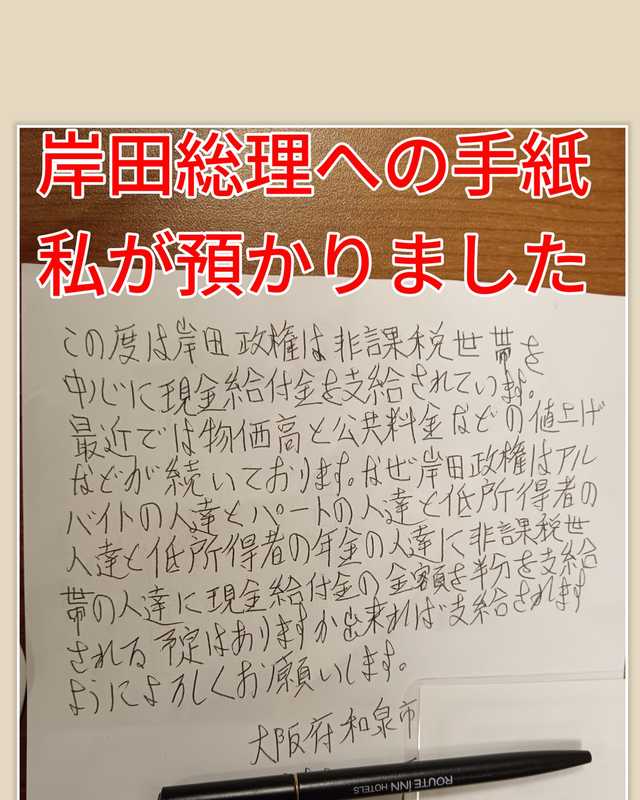 岸田総理への手紙
私が預かりました
この度は岸田政権は非課税世帯を
中心に現金給付金を支給されています。
最近では物価高と公共料金などの値上げ
などが続いております。なぜ岸田政権はアル
バイトの人達とパートの人達と低所得者の
人達と低所得者の年金の人達に非課税世
帯の人達に現金給付金の金額を半分を支給
される予定はありますか出来れば支給されます
ようによろしくお願いします。
大阪府和泉市
ROUTE INN HOTELS